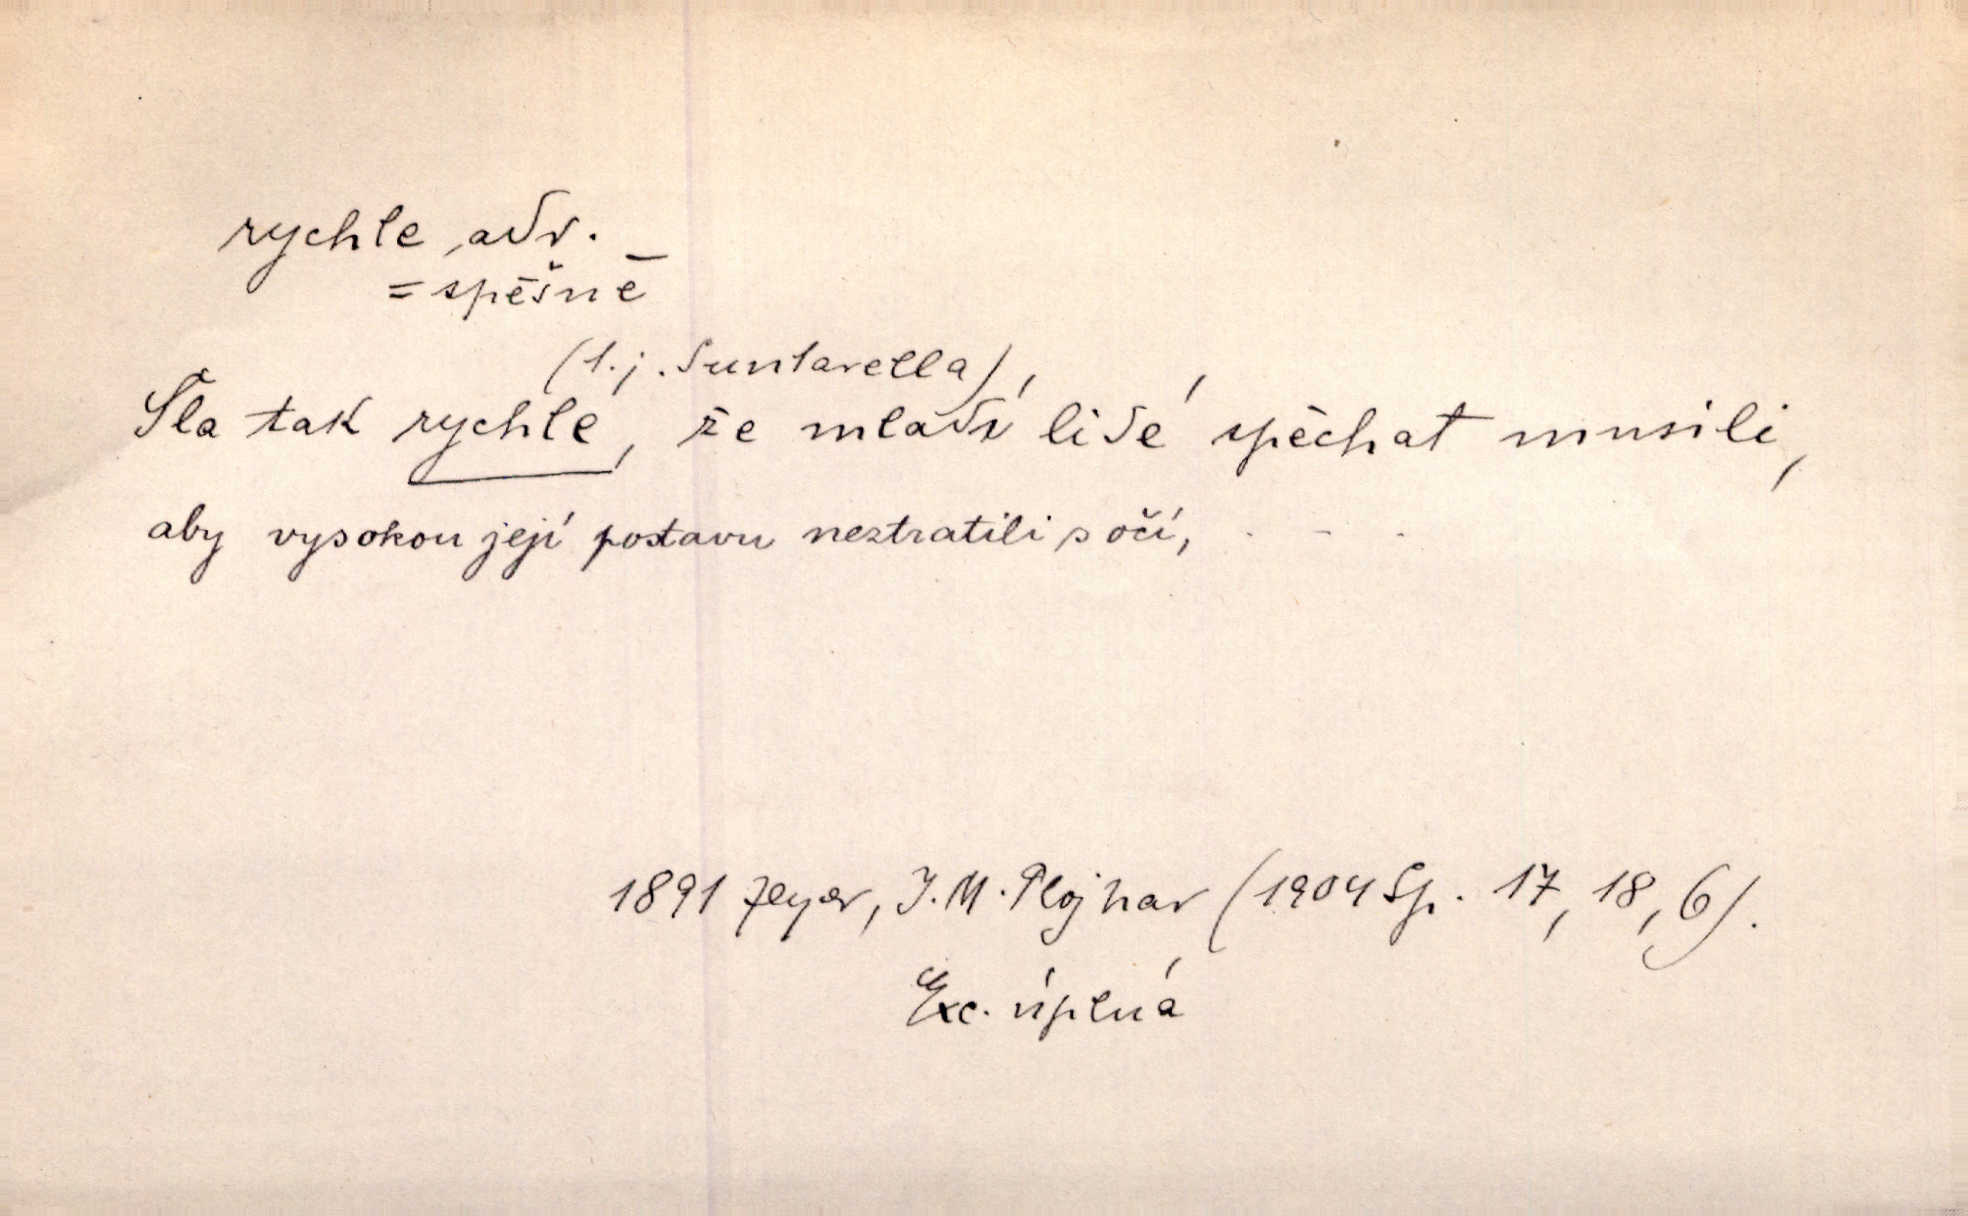 rychle, adv.
= spěšně
(t. j. Suntarella)
Šla tak rychle, že mladí lidé spěchat musili,
aby vysokou její postavu neztratili s očí, . - .
1891 Zeyer, J. M. Plojhar (1904 Sp. 17, 18, 6).
Exc. úplná